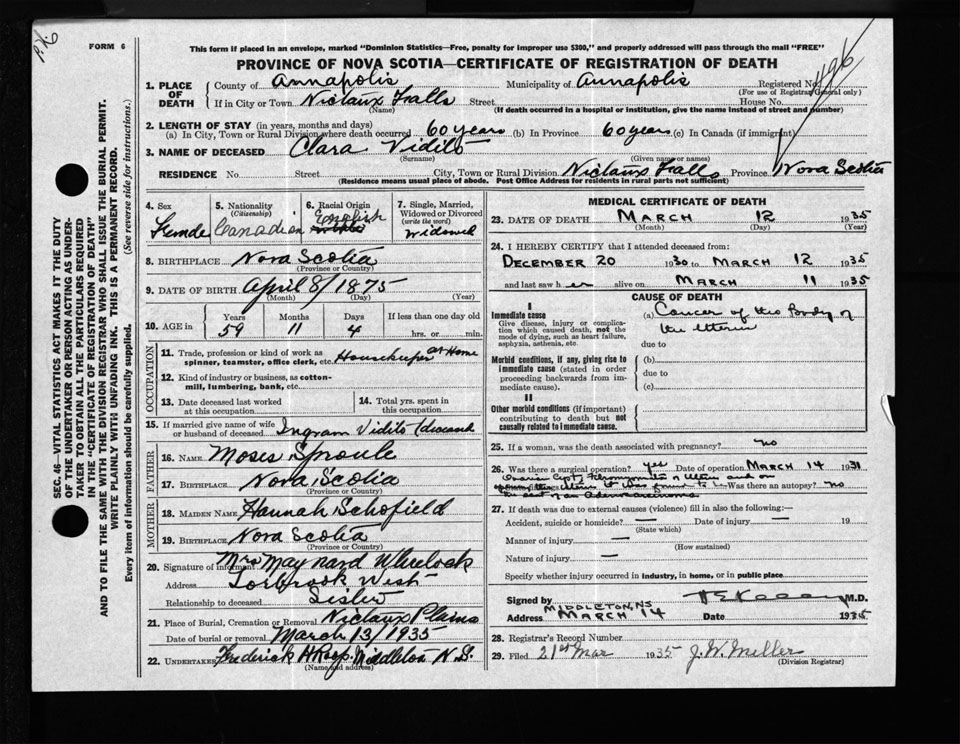 P.N.6
FORM 6
This form if placed in an envelope, marked "Dominion Statistics—Free, penalty for improper use $300," and properly addressed will pass through the mail "FREE"
PROVINCE OF NOVA SCOTIA—CERTIFICATE OF REGISTRATION OF DEATH
1. PLACE OF DEATH County of Annapolis Municipality of Annapolis Registered No. 496
(For use of Registrar General only)
If in City or Town Nictaux Falls Street House No.
(Name) (If death occurred in a hospital or institution, give the name instead of street and number)
2. LENGTH OF STAY (in years, months and days)
(a) In City, Town or Rural Division where death occurred 60 years (b) In Province 60 years (c) In Canada (if immigrant)
3. NAME OF DECEASED Clara Vidito
(Surname) (Given name or names)
RESIDENCE No. Street City, Town or Rural Division Nictaux Falls Province Nova Scotia
(Residence means usual place of abode. Post Office Address for residents in rural parts not sufficient)
4. Sex Female
5. Nationality (Citizenship) Canadian
6. Racial Origin English
7. Single, Married, Widowed or Divorced (write the word) Widowed
8. BIRTHPLACE Nova Scotia
(Province or Country)
9. DATE OF BIRTH April 8/1875
(Month) (Day) (Year)
10. AGE in Years Months Days If less than one day old
59 11 4 hrs. or min.
OCCUPATION
11. Trade, profession or kind of work as spinner, teamster, office clerk, etc. Housekeeper at Home
12. Kind of industry or business, as cotton-mill, lumbering, bank, etc.
13. Date deceased last worked at this occupation
14. Total yrs. spent in this occupation
15. If married give name of wife or husband of deceased Ingram Vidito
FATHER
16. NAME Moses Sproule
17. BIRTHPLACE Nova Scotia
(Province or Country)
MOTHER
18. MAIDEN NAME Hannah Schofield
19. BIRTHPLACE Nova Scotia
(Province or Country)
20. Signature of informant Mrs Maynard Wheelock
Address Torbrook West
Relationship to deceased Sister
21. Place of Burial, Cremation or Removal Nictaux Plains
Date of burial or removal March 13/1935
22. UNDERTAKER Frederick H Roop, Middleton N.S.
(Name and address)
MEDICAL CERTIFICATE OF DEATH
23. DATE OF DEATH MARCH 12 1935
(Month) (Day) (Year)
24. I HEREBY CERTIFY that I attended deceased from:
DECEMBER 20 1930 to MARCH 12 1935
and last saw her alive on MARCH 11 1935
CAUSE OF DEATH
I
Immediate cause
Give disease, injury or complication which caused death, not the mode of dying, such as heart failure, asphyxia, asthenia, etc.
(a) Cancer of the Body of the Uterus
due to
Morbid conditions, if any, giving rise to immediate cause (stated in order proceeding backwards from immediate cause).
(b)
due to
(c)
II
Other morbid conditions (if important) contributing to death but not causally related to immediate cause.
25. If a woman, was the death associated with pregnancy? no
26. Was there a surgical operation? yes Date of operation MARCH 14 1931
Was there an autopsy? no
27. If death was due to external causes (violence) fill in also the following:—
Accident, suicide or homicide? — Date of injury — 19
(State which)
Manner of injury —
(How sustained)
Nature of injury —
Specify whether injury occurred in industry, in home, or in public place
Signed by M.D.
Address MIDDLETON, NS Date MARCH 14 1935
28. Registrar's Record Number
29. Filed 21st Mar 1935 J. W. Miller
(Division Registrar)
SEC. 46—VITAL STATISTICS ACT MAKES IT THE DUTY
OF THE UNDERTAKER OR PERSON ACTING AS UNDER-
TAKER TO OBTAIN ALL THE PARTICULARS REQUIRED
IN THE "CERTIFICATE OF REGISTRATION OF DEATH"
AND TO FILE THE SAME WITH THE DIVISION REGISTRAR WHO SHALL ISSUE THE BURIAL PERMIT.
WRITE PLAINLY WITH UNFADING INK. THIS IS A PERMANENT RECORD.
Every item of information should be carefully supplied. (See reverse side for instructions.)